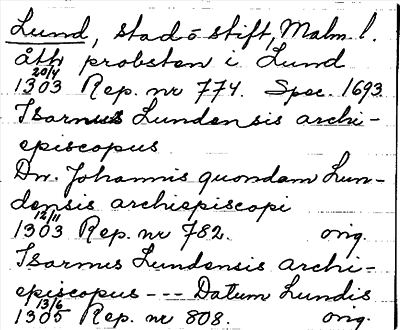 Lund, stad o stift, Malm l.
åth probsten i Lund
20/4
1303 Rep. nr 774. Spec. 1693
Isarnus Lundensis archi-
episcopus
Dn. Johannis quondam Lun-
densis archiepiscopi
12/11
1303 Rep. nr 782. orig.
Isarnus Lundensis archi-
episcopus --- Datum Lundis
13/6
1305 Rep. nr 808. orig.